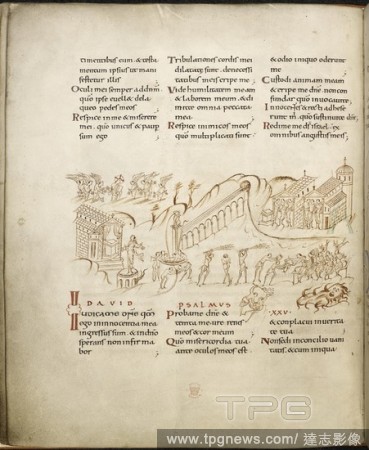 timentibus eum & testa
mentum ipsius ut mani
fest&ur illis
Oculi mei semper ad dnm
quo ipse euell& de la
queo pedes meos
Respice in me & miserere
mei quia unicus & paup
sum ego
Tribulationes cordis mei
dilatate sunt de necessi
tatibus meis eripe me
Uide humilitatem meam
& laborem meum & di
mitte omnia peccata
mea
Respice inimicos meos
quo multiplicati sunt
& odio iniquo oderunt
me
Custodi animam meam
& eripe me dne non con
fundar quo inuocaui te
Innocentes & recti adhese
runt m quo sustinui te dne
Redime me ds israel ex
omnibus angustiis meis
DAVID PSALMUS XXV
Iudica me dne quo
ego in innocentia mea
ingressus sum & in dno
sperans non infirma
bor
Proba me dne &
tenta me ure renes
meos & cor meum
Quo misericordia tua
ante oculos meos est
& conplacui in uerita
te tua
Non sedi in concilio uani
tatis & cum iniqua
TPG
www.tpgnews.com/ 達志影像